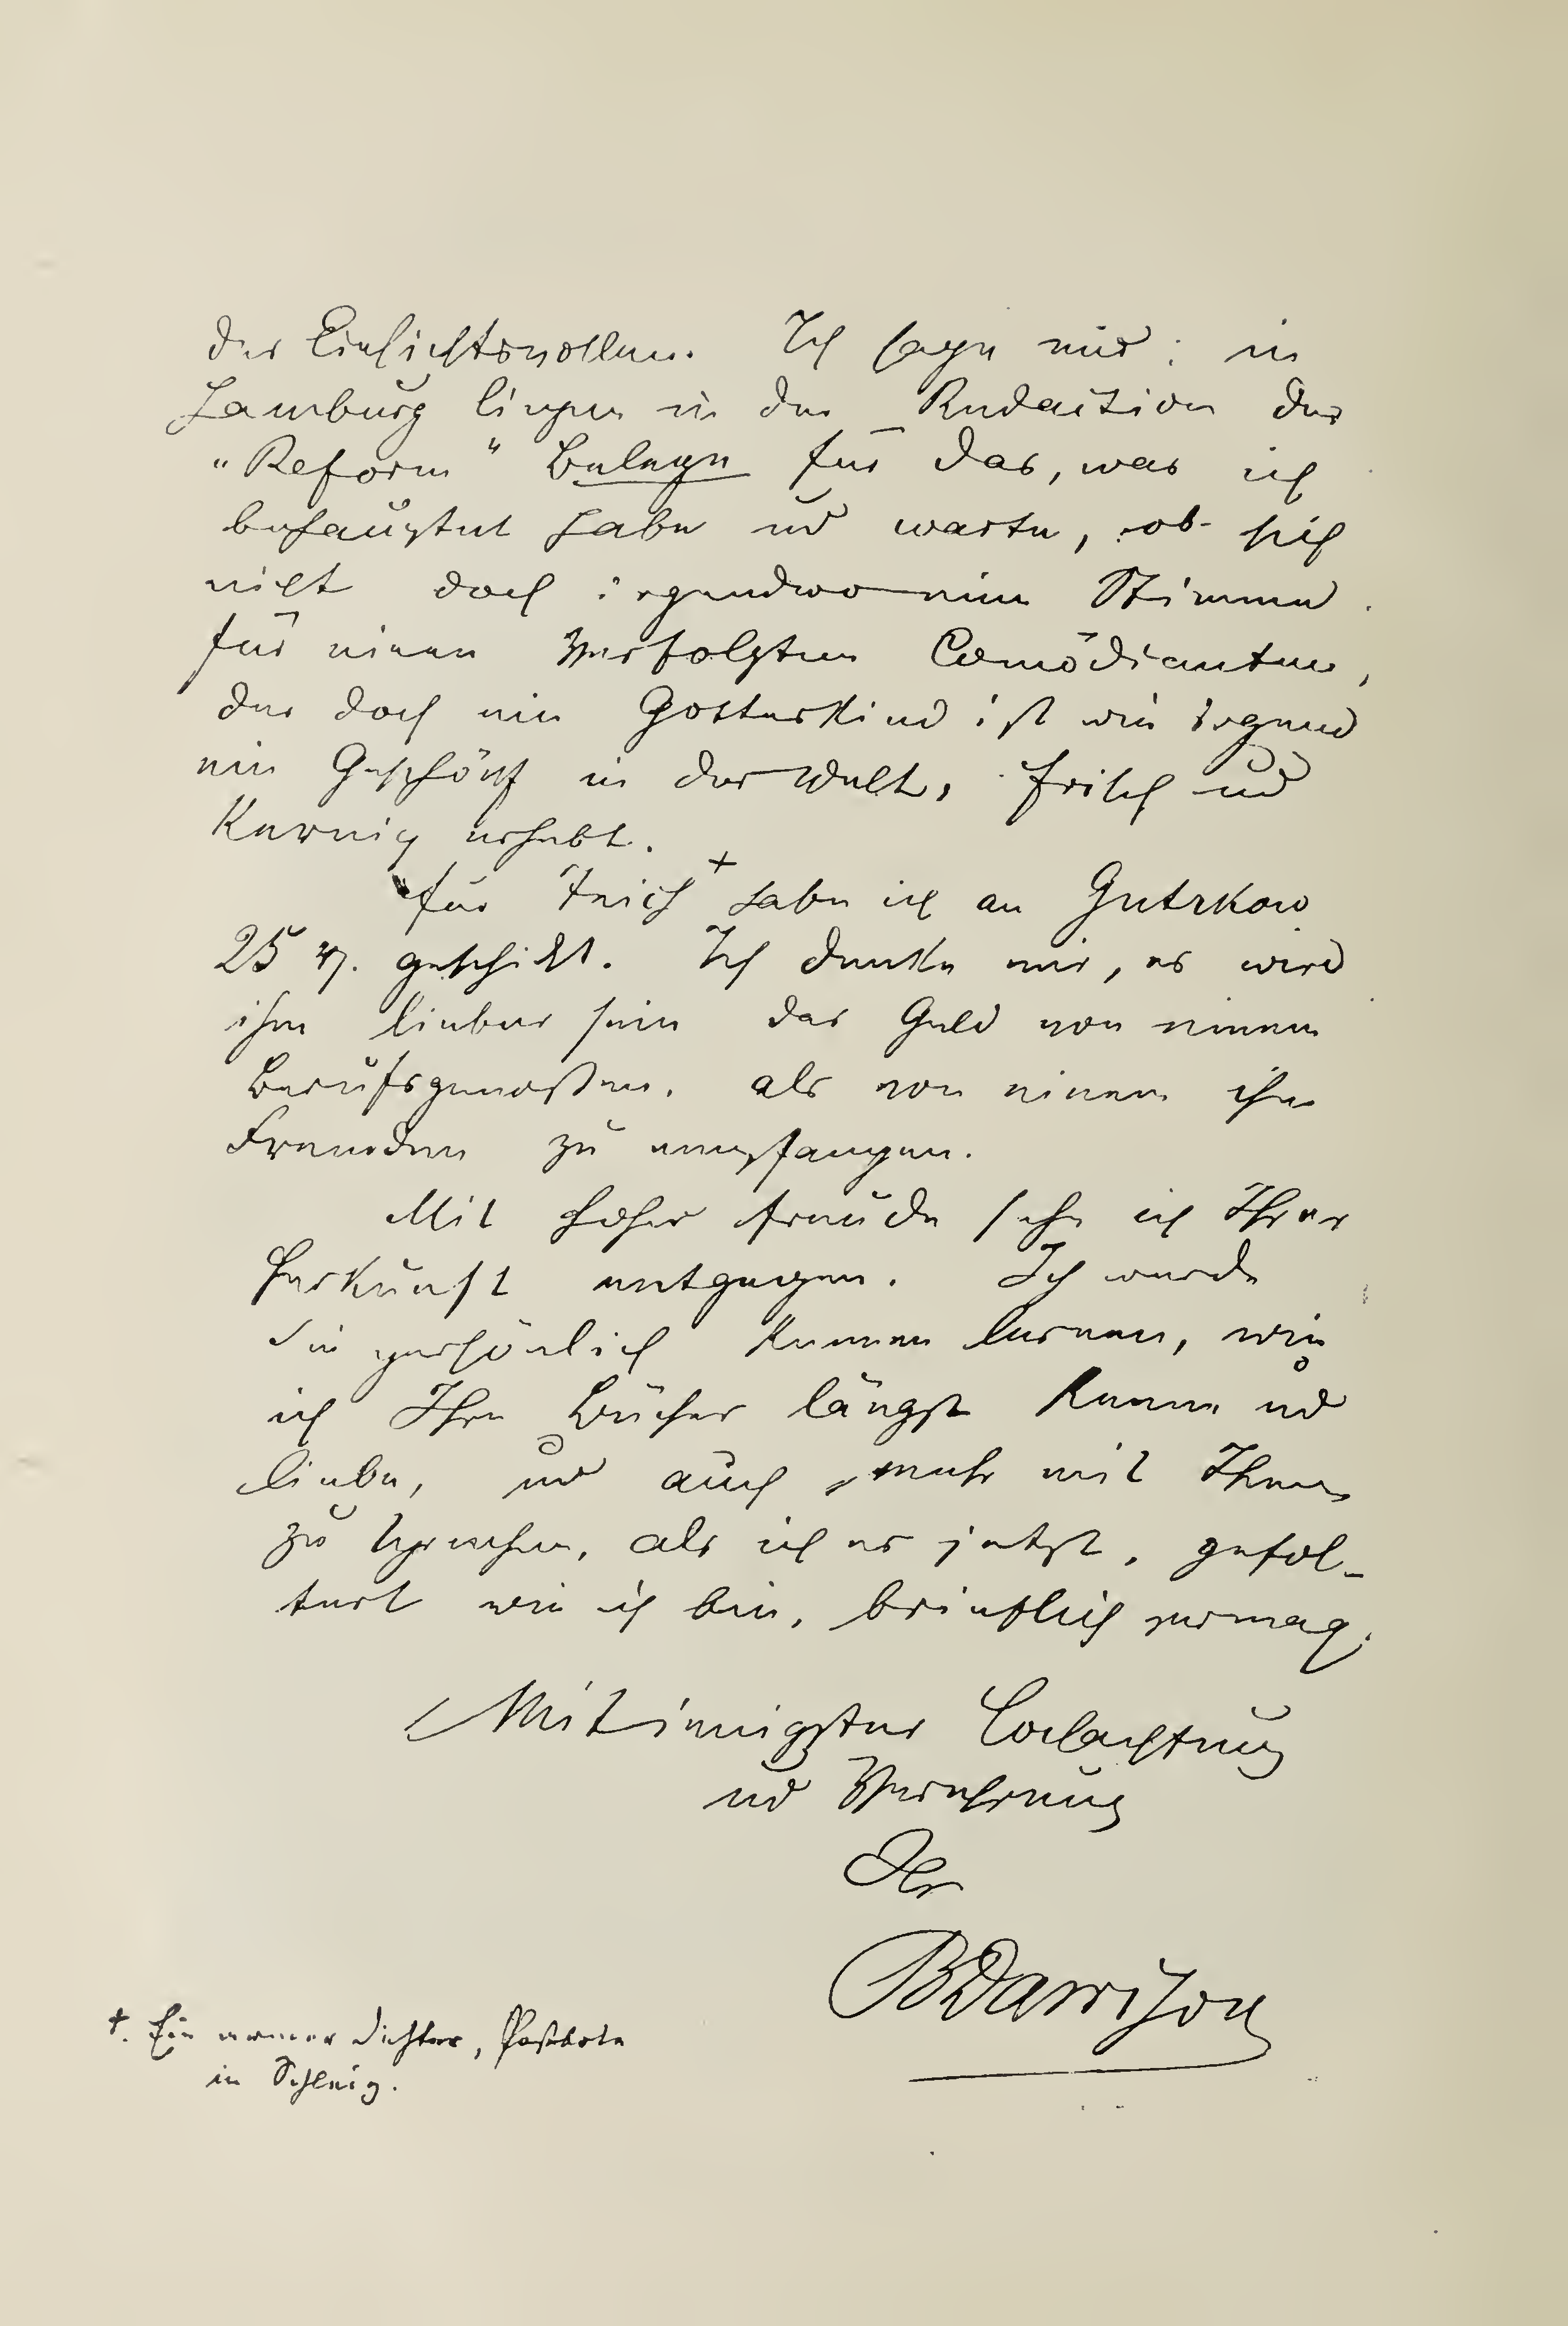 der Einsichtsvollen. Ich sage nur: in
Hamburg liegen in der Redaction der
„Reform" Belege für das, was ich
behauptet habe und warte, ob sich
nicht doch irgendwo eine Stimme
für einen verfolgten Comödianten,
der doch ein Gotteskind ist wie irgend
ein Geschöpf in der Welt, frisch und
kernig erhebt.
Für habe ich an Gutzkow
25 geschickt. Ich denke mir, es wird
ihm lieber sein das Geld von einem
Berufsgenoßen, als von einem ihm
Fremden zu empfangen.
Mit hoher Freude sehe ich Ihrer
Herkunft entgegen. Ich werde
Sie persönlich kennen lernen, wie
ich Ihre Bücher längst kenne und
liebe, und auch mehr mit Ihnen
zu sprechen, als ich es jetzt, gefol-
tert wie ich bin, brieflich vermag.
Mit innigster Hochachtung
und Verehrung
Ihr
BDawison
+. Ein armer Dichter, Postbote
in Schleiz.